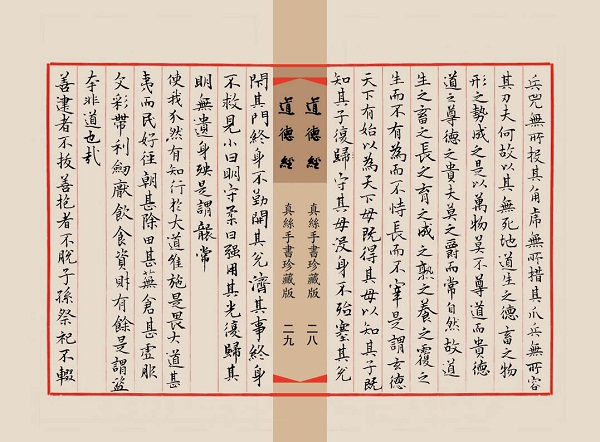 兵兕無所投其角虎無所措其爪兵無所容
其刃夫何故以其無死地道生之德畜之物
形之勢成之是以萬物莫不尊道而貴德
道之尊德之貴夫莫之爵而常自然故道
生之畜之長之育之成之熟之養之覆之
生而不有為而不恃長而不宰是謂玄德
天下有始以為天下母既得其母以知其子既
知其子復歸守其母沒身不殆塞其兌
道德經 真絲手書珍藏版 二八
道德經 真絲手書珍藏版 二九
閉其門終身不勤開其兌濟其事終身
不救見小曰明守柔曰强用其光復歸其
明無遺身殃是謂襲常
使我介然有知行於大道唯施是畏大道甚
夷而民好徑朝甚除田甚蕪倉甚虛服
文彩帶利劍厭飲食資財有餘是謂盜
夸非道也哉
善建者不拔善抱者不脫子孫祭祀不輟